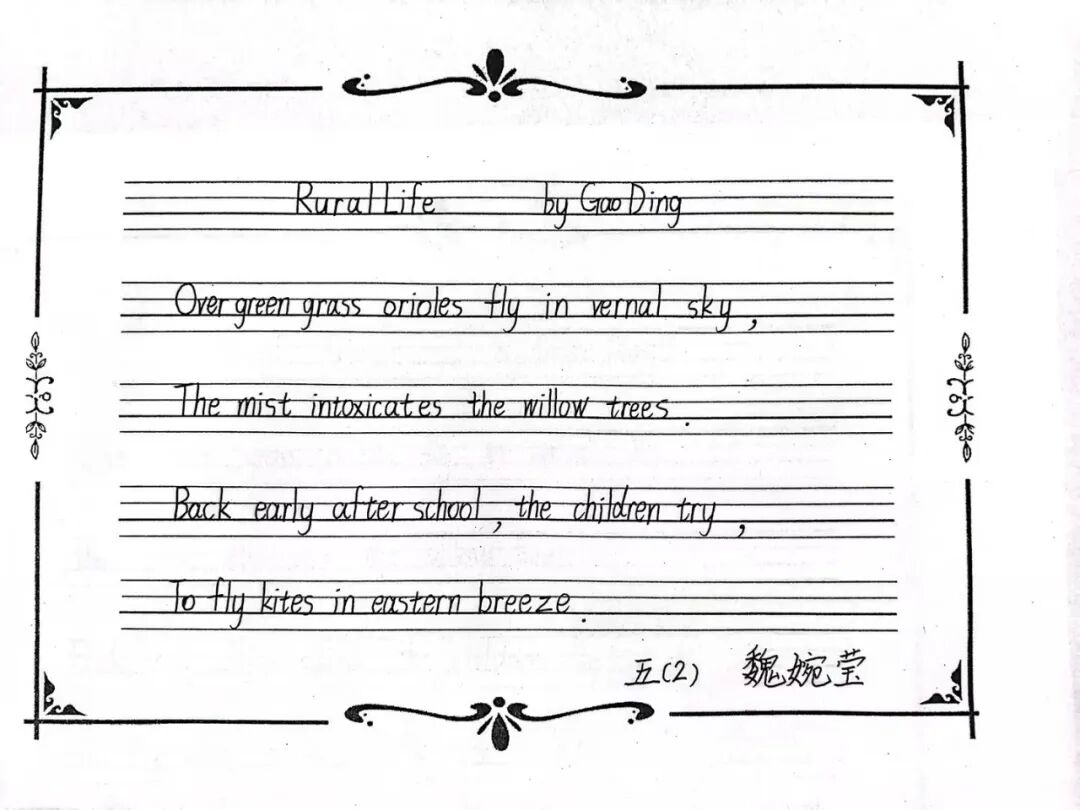 Rural Life by Gao Ding
Over green grass orioles fly in vernal sky,
The mist intoxicates the willow trees.
Back early after school, the children try,
To fly kites in eastern breeze.
五(2) 魏婉莹